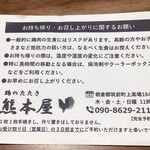 お持ち帰り・お召し上がりに関するお願い
●一般的に鶏肉の生食にはリスクがあります。高齢の方やお子
さまなど抵抗力の弱い方は、なるべく生食をお控えください。
●お持ち帰りの際は、温度や湿度の変化にご注意ください。
●特に長時間の移動となる場合は、保冷剤やクーラーボックス
などをご利用ください。
●お早めにお召し上がりください。
鶏のたたき
熊本屋
朝倉郡筑前町上高場16
木・金・土・日曜 11時
090-8629-211
【完全予約
1枚1枚手焼きし、作り置きはしておりません。
お受け取り日（営業日）の3日前までにご予約